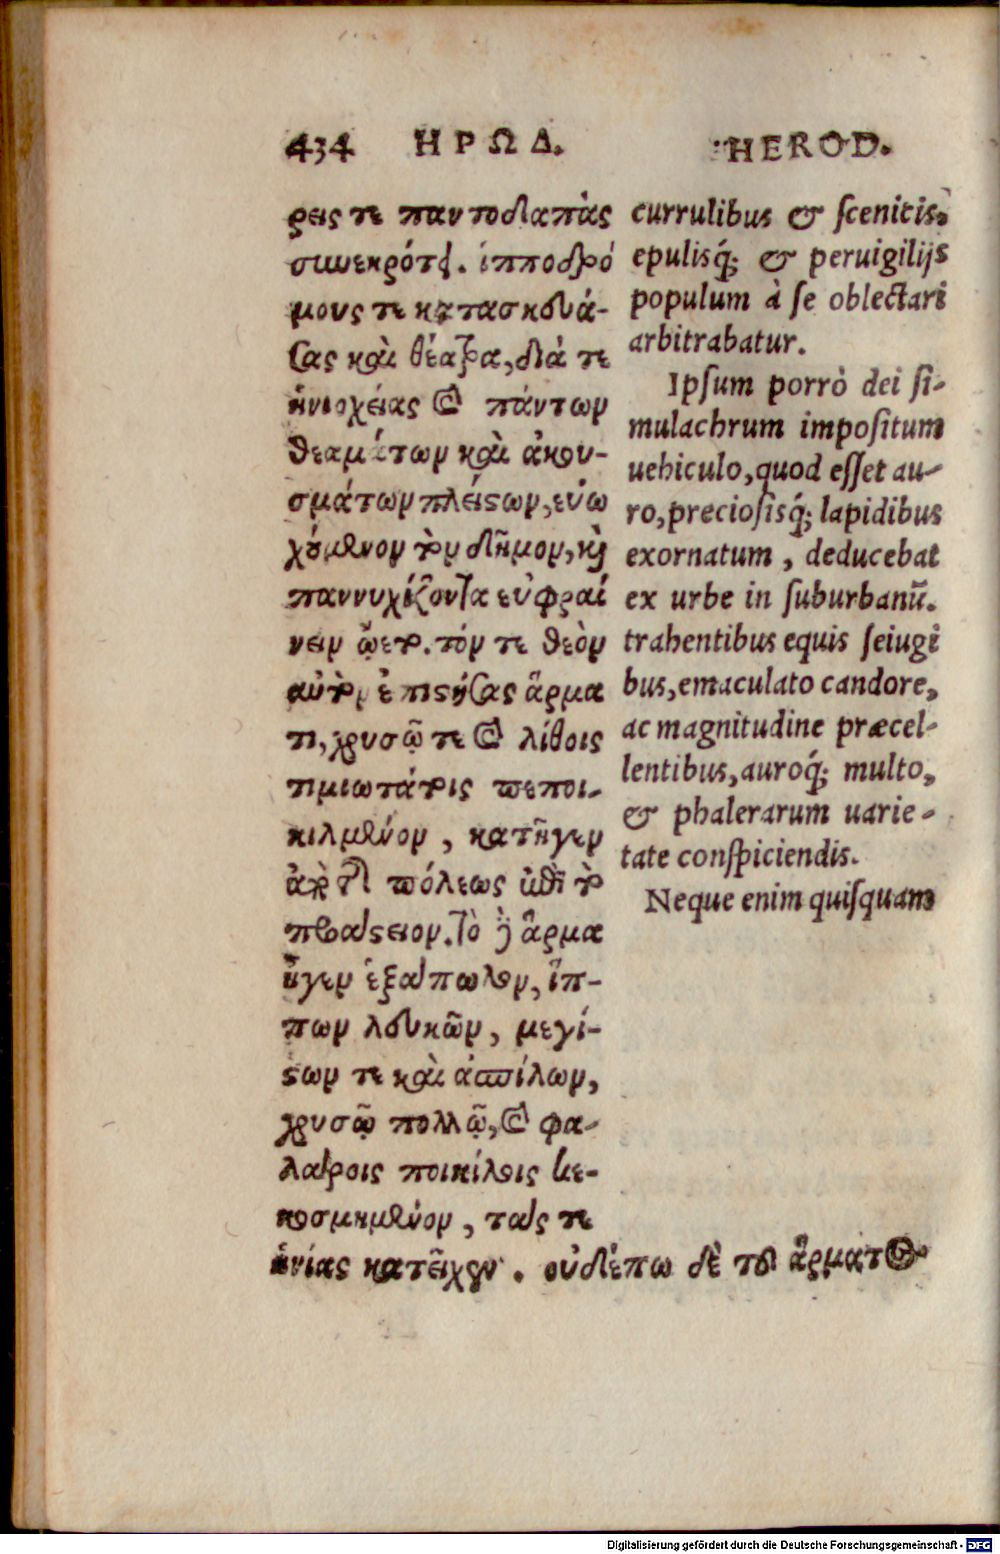 434 ΗΡΩΔ. HEROD.
ρεις τε παντοδαπὰς
συνεκρότει. ἱπποδρό
μους τε κατασκευά-
σας καὶ θέατρα, διά τε
ἡνιοχείας καὶ πάντων
θεαμάτων καὶ ἀκου-
σμάτων πλείστων, εὐω
χούμενον τὸν δῆμον, καὶ
παννυχίζοντα εὐφραί
νειν ᾤετο. τόν τε θεὸν
αὐτὸν ἐπιστήσας ἅρμα
τι, χρυσῷ τε καὶ λίθοις
τιμιωτάτοις πεποι-
κιλμένον, κατῆγεν
ἀπὸ τῆς πόλεως ἐπὶ τὸ
προάστειον. τὸ δὲ ἅρμα
ἦγεν ἑξάπωλον, ἵπ-
πων λευκῶν, μεγί-
στων τε καὶ ἀσπίλων,
χρυσῷ πολλῷ, καὶ φα-
λάροις ποικίλοις κε-
κοσμημένον, τάς τε
ἡνίας κατεῖχεν. οὐδέπω δὲ τοῦ ἅρματος
currulibus & scenicis,
epulisq́; & peruigilijs
populum à se oblectari
arbitrabatur.
Ipsum porrò dei si-
mulachrum impositum
uehiculo, quod esset au-
ro, preciosisq́; lapidibus
exornatum, deducebat
ex urbe in suburbanū.
trahentibus equis seiugi
bus, emaculato candore,
ac magnitudine præcel-
lentibus, auroq́; multo,
& phalerarum uarie-
tate conspiciendis.
Neque enim quisquam
Digitalisierung gefördert durch die Deutsche Forschungsgemeinschaft - DFG